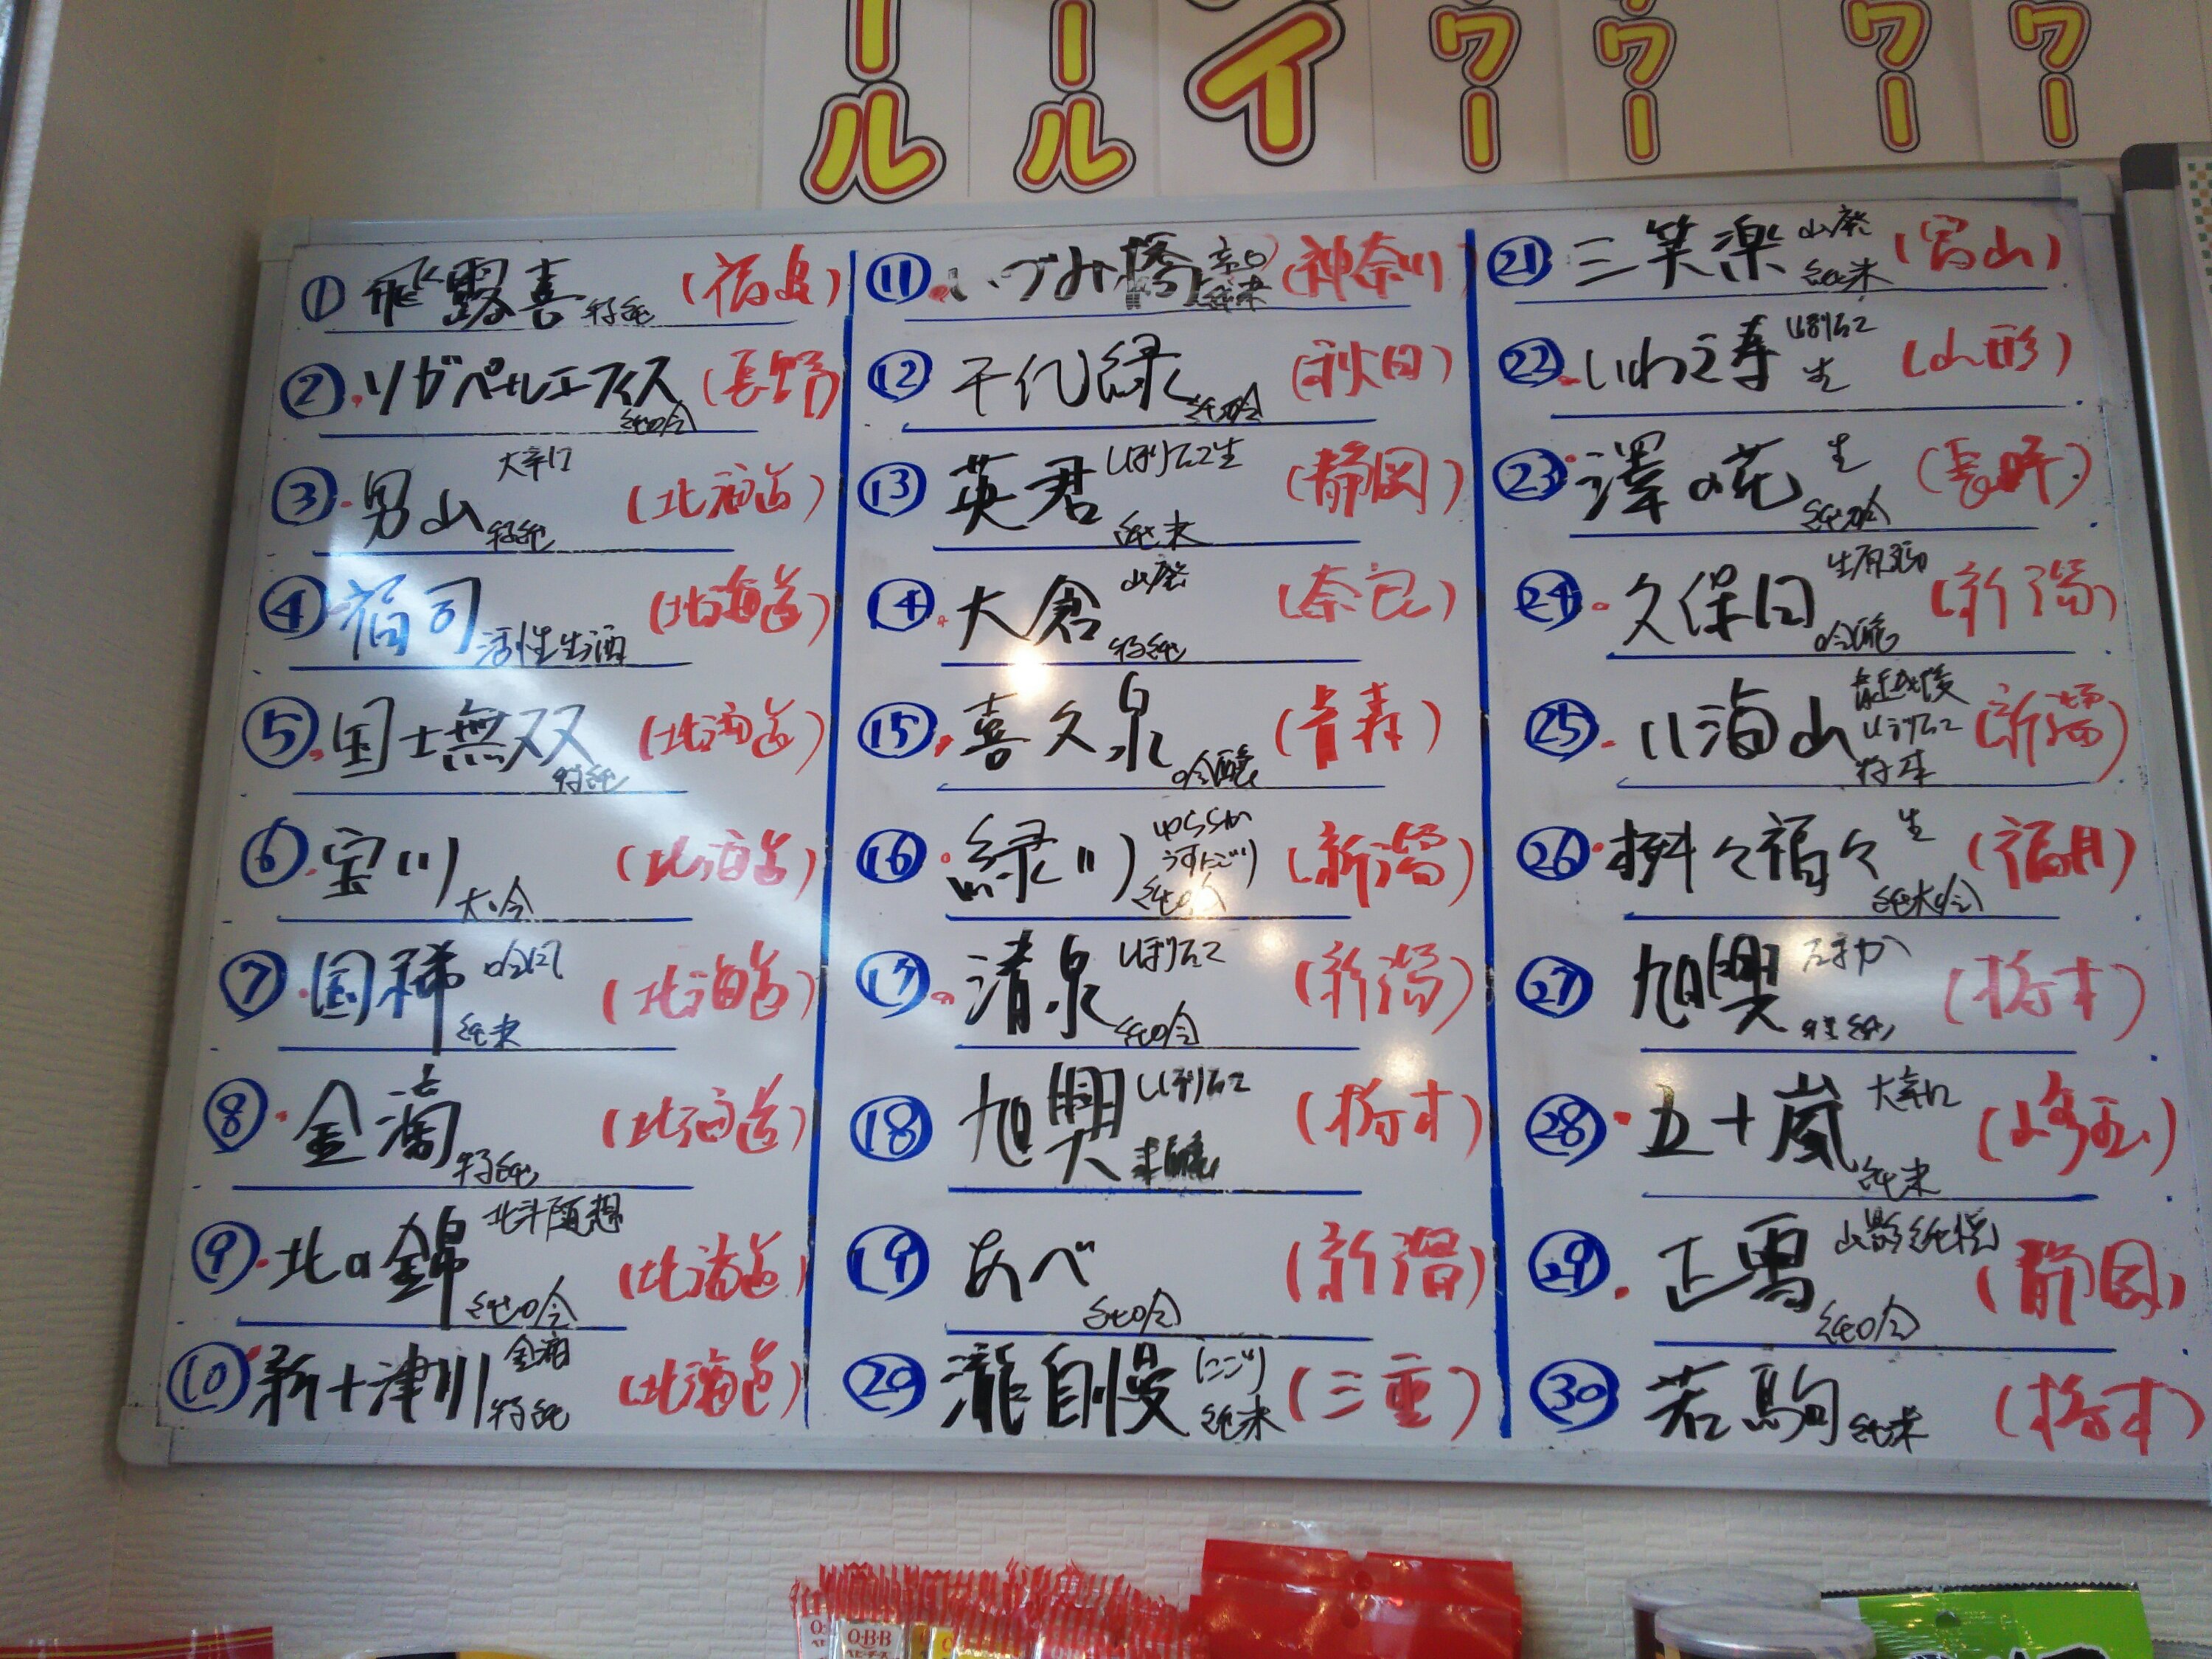 ール
ール
イ
ワー
ワー
ワー
ワー
① 飛露喜 特純 (福島)
② ソガペールエフィス 純吟 (長野)
③ 男山 大辛口 特純 (北海道)
④ 福司 活性生酒 (北海道)
⑤ 国士無双 特純 (北海道)
⑥ 宝川 大吟 (北海道)
⑦ 国稀 吟風 純米 (北海道)
⑧ 金滴 特純 (北海道)
⑨ 北の錦 北斗随想 純吟 (北海道)
⑩ 新十津川 金滴 特純 (北海道)
⑪ いづみ橋 辛口 純米 (神奈川)
⑫ 千代緑 純吟 (秋田)
⑬ 英君 しぼりたて生 純米 (静岡)
⑭ 大倉 山廃 特純 (奈良)
⑮ 喜久泉 吟醸 (青森)
⑯ 緑川 ゆららか うすにごり 純吟 (新潟)
⑰ 清泉 しぼりたて 純吟 (新潟)
⑱ 旭興 しぼりたて (栃木)
⑲ あべ 純吟 (新潟)
⑳ 瀧自慢 にごり 純米 (三重)
㉑ 三笑楽 山廃 純米 (富山)
㉒ いわゐ寿 しぼりたて 生 (山形)
㉓ 澤の花 生 純吟 (長野)
㉔ 久保田 生原酒 吟醸 (新潟)
㉕ 八海山 越後 しぼりたて 特本 (新潟)
㉖ 桝々福々 生 純大吟 (福井)
㉗ 旭興 たまか 特純 (栃木)
㉘ 五十嵐 大辛口 純米 (埼玉)
㉙ 正雪 山影純悦 純吟 (静岡)
㉚ 若駒 純米 (栃木)
Q・B・B
ベビーチーズ